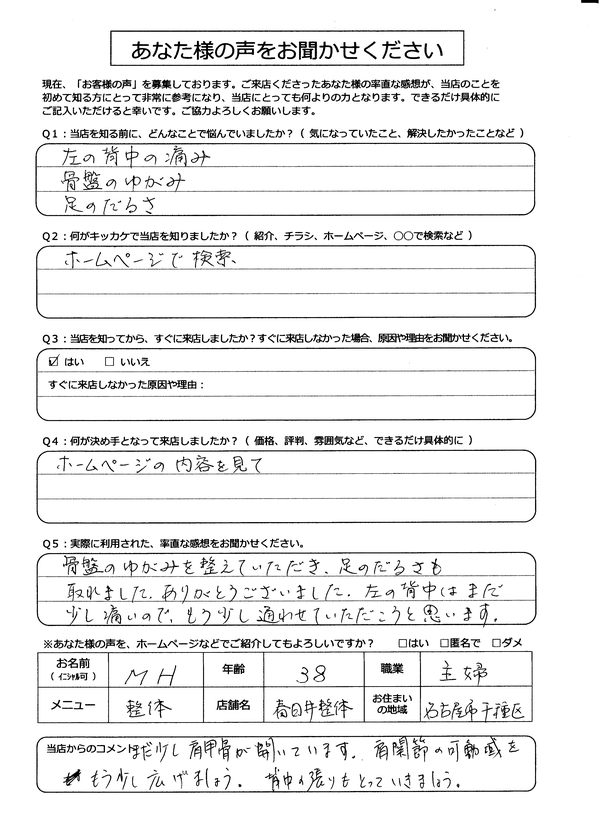 あなた様の声をお聞かせください
現在、「お客様の声」を募集しております。ご来店くださったあなた様の率直な感想が、当店のことを
初めて知る方にとって非常に参考になり、当店にとっても何よりの力となります。できるだけ具体的に
ご記入いただけると幸いです。ご協力よろしくお願いします。
Q1：当店を知る前に、どんなことで悩んでいましたか？（ 気になっていたこと、解決したかったことなど ）
左の背中の痛み
骨盤のゆがみ
足のだるさ
Q2：何がキッカケで当店を知りましたか？（ 紹介、チラシ、ホームページ、○○で検索など ）
ホームページで検索、
Q3：当店を知ってから、すぐに来店しましたか？すぐに来店しなかった場合、原因や理由をお聞かせください。
☑ はい □ いいえ
すぐに来店しなかった原因や理由：
Q4：何が決め手となって来店しましたか？（ 価格、評判、雰囲気など、できるだけ具体的に ）
ホームページの内容を見て
Q5：実際に利用された、率直な感想をお聞かせください。
骨盤のゆがみを整えていただき、足のだるさも
取れました。ありがとうございました。左の背中はまだ
少し痛いので、もう少し通わせていただこうと思います。
※あなた様の声を、ホームページなどでご紹介してもよろしいですか？ □はい □匿名で □ダメ
お名前（ ｲﾆｼｬﾙ可 ） MH 年齢 38 職業 主婦
メニュー 整体 店舗名 春日井整体 お住まいの地域 名古屋市千種区
当店からのコメント まだ少し肩甲骨が開いています。肩関節の可動域を
もう少し広げましょう。背中の張りもとっていきましょう。